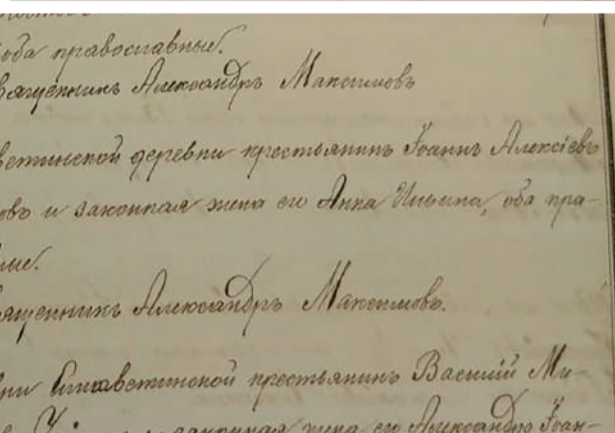 оба православные.
священникъ Александръ Максимовъ
ветинской деревни крестьянинъ Іоаннъ Алексіевъ
овъ и законная жена его Анна Ильина, оба пра-
ные.
священникъ Александръ Максимовъ.
вни Елисаветинской крестьянинъ Василій Ми-
законная жена его Александра Іоан-